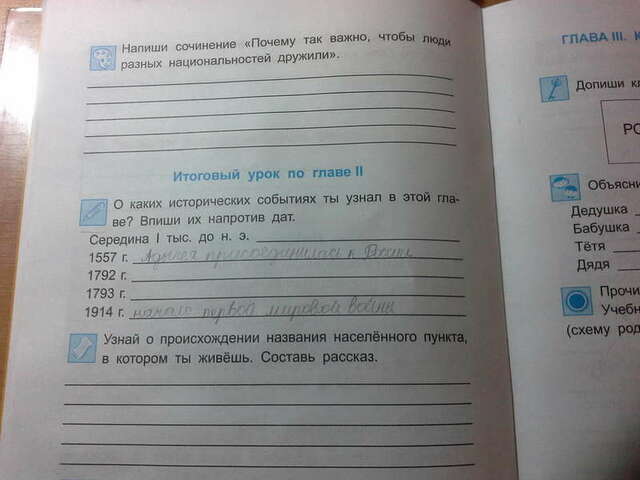 Напиши сочинение «Почему так важно, чтобы люди
разных национальностей дружили».
Итоговый урок по главе II
О каких исторических событиях ты узнал в этой гла-
ве? Впиши их напротив дат.
Середина I тыс. до н. э.
1557 г. Адыгея присоединилась к России
1792 г.
1793 г.
1914 г. начало первой мировой войны
Узнай о происхождении названия населённого пункта,
в котором ты живёшь. Составь рассказ.
ГЛАВА III. К
Допиши кл
РО
Объясни
Дедушка
Бабушка
Тётя
Дядя
Прочи
Учебн
(схему род